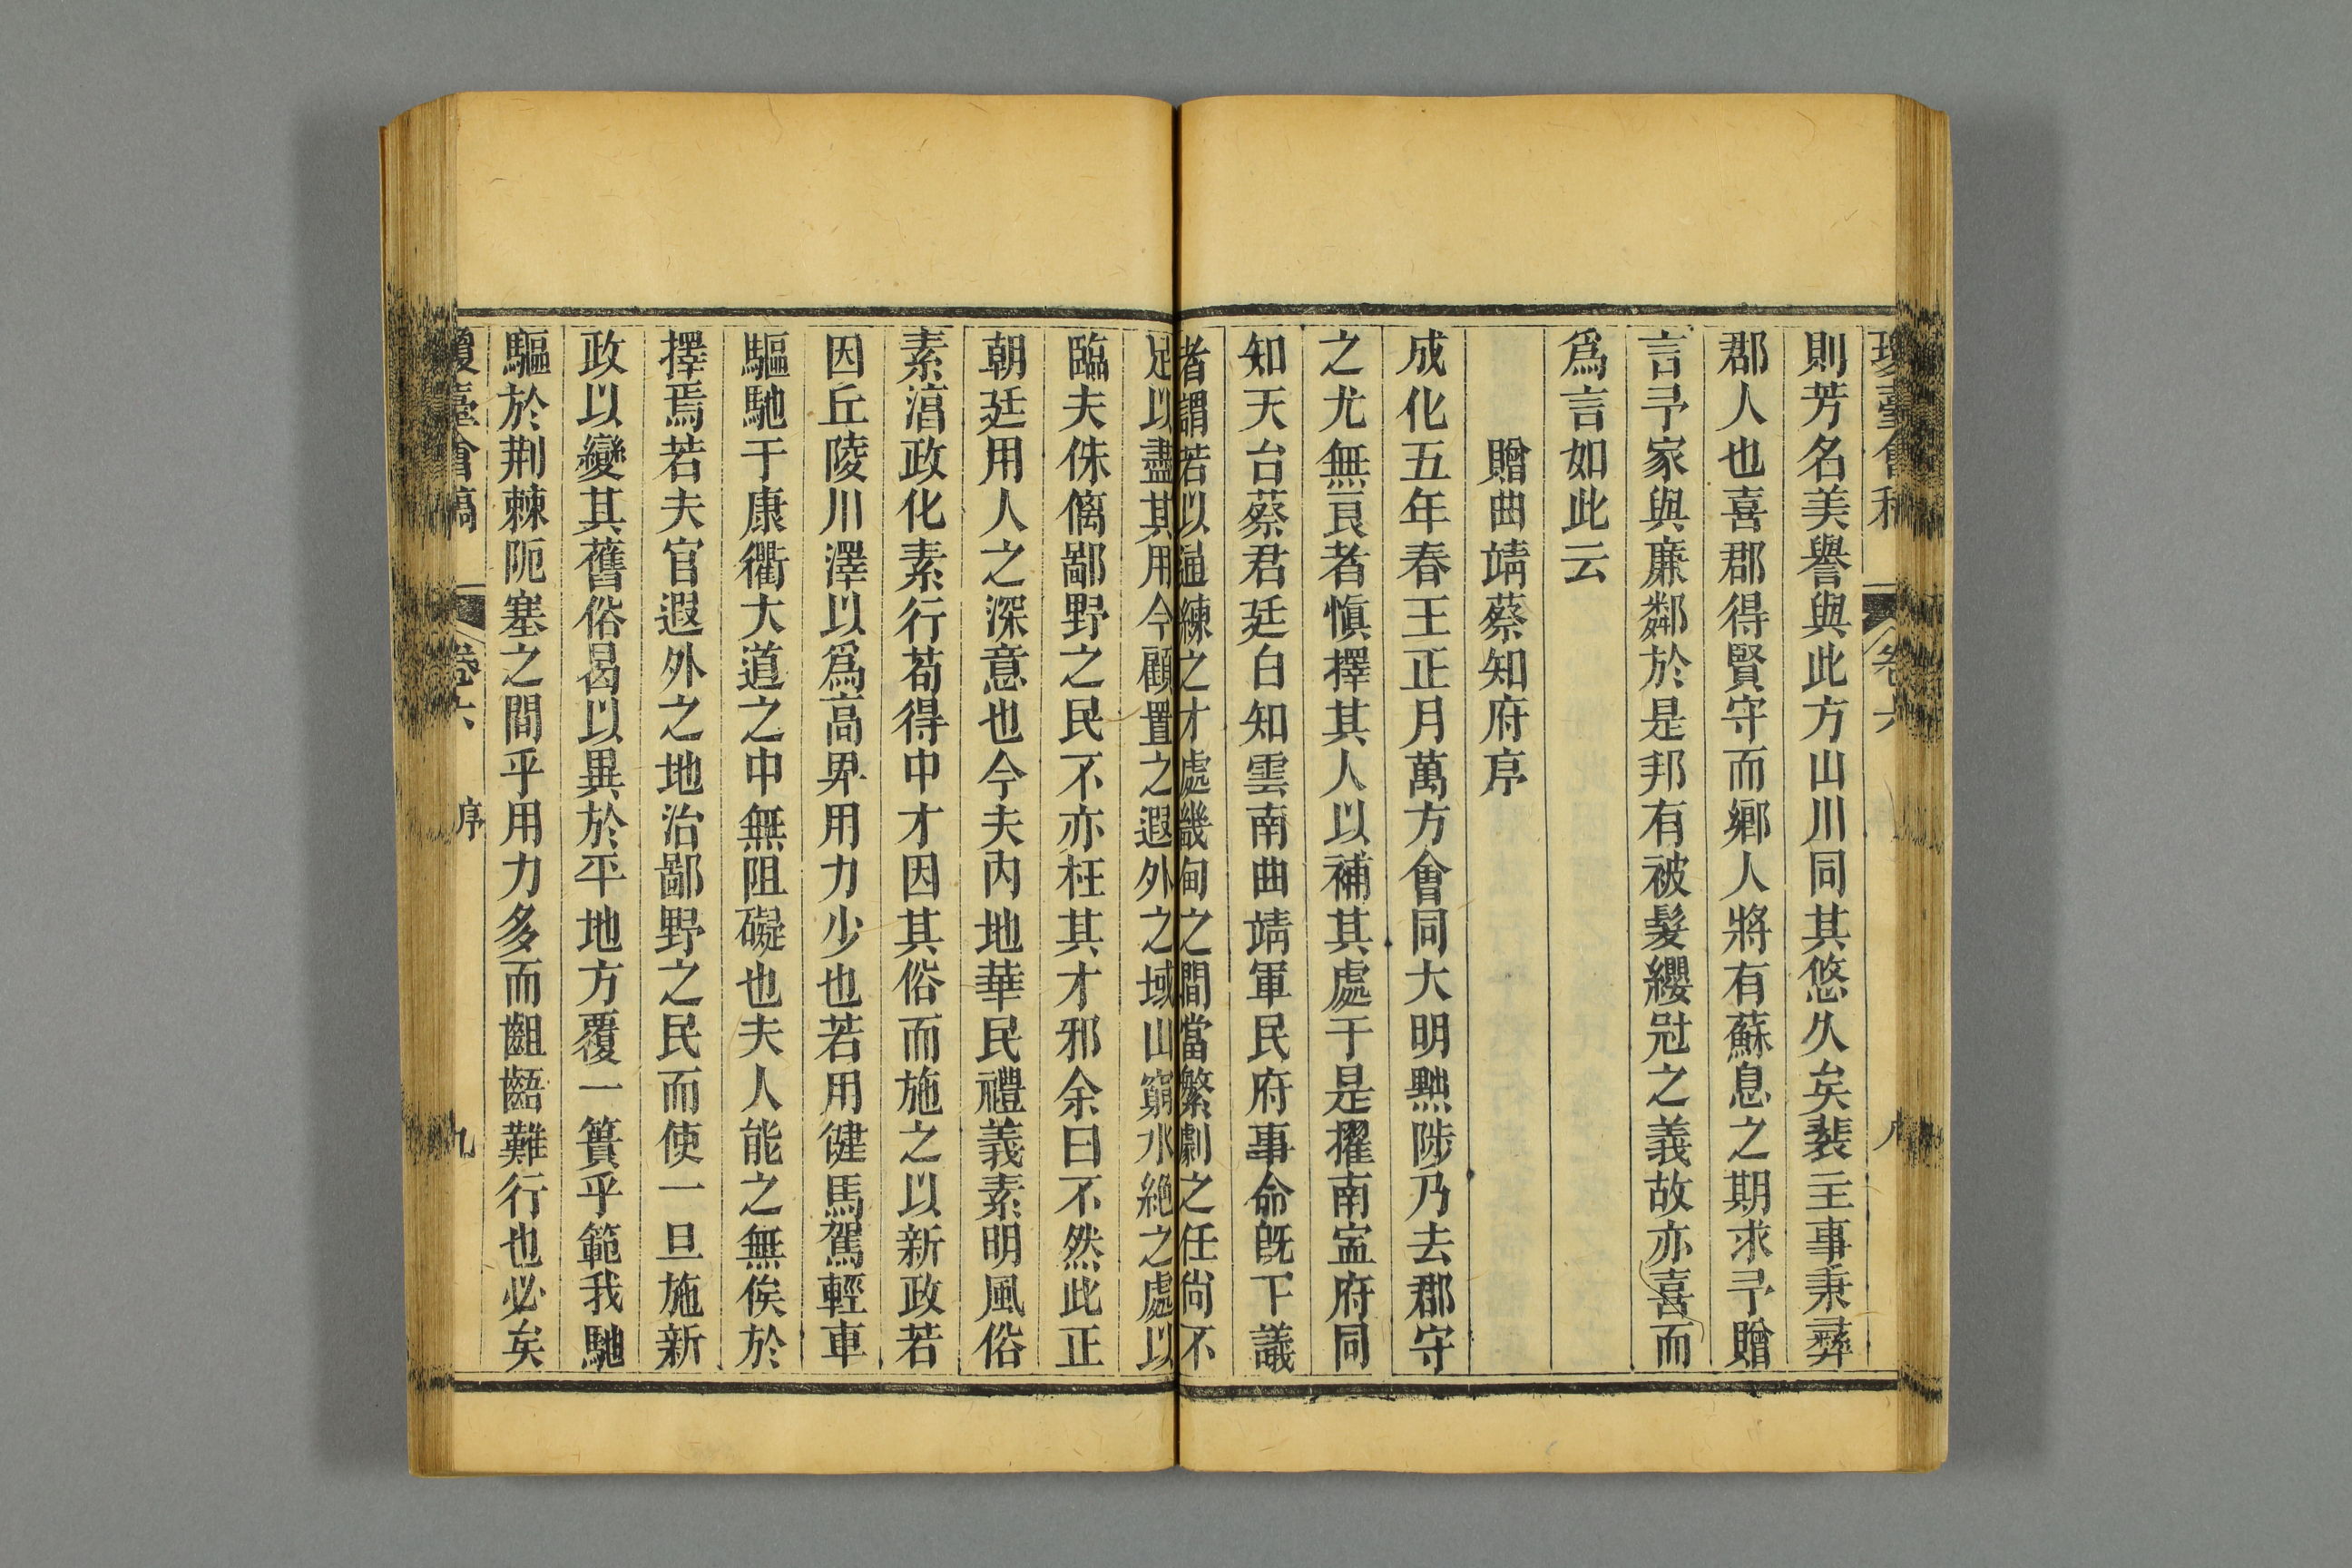 瓊臺會稿 卷六
則芳名美譽與此方山川同其悠久矣裴主事秉彝
郡人也喜郡得賢守而鄉人將有蘇息之期求予贈
言予家與廉鄰於是邦有被髮纓冠之義故亦喜而
爲言如此云
贈曲靖蔡知府序
成化五年春王正月萬方會同大明黜陟乃去郡守
之尤無良者愼擇其人以補其處于是擢南寍府同
知天台蔡君廷白知雲南曲靖軍民府事命旣下議
者謂若以通練之才處畿甸之間當繁劇之任尚不
足以盡其用今顧置之遐外之域山窮水絶之處以
臨夫侏僪鄙野之民不亦枉其才邪余曰不然此正
朝廷用人之深意也今夫內地華民禮義素明風俗
素湻政化素行苟得中才因其俗而施之以新政若
因丘陵川澤以爲高畀用力少也若用健馬駕輕車
驅馳于康衢大道之中無阻礙也夫人能之無俟於
擇焉若夫官遐外之地治鄙野之民而使一旦施新
政以變其舊俗曷以異於平地方覆一簣乎範我馳
驅於荆棘阨塞之間乎用力多而齟齬難行也必矣
瓊臺會稿 卷六 序 九